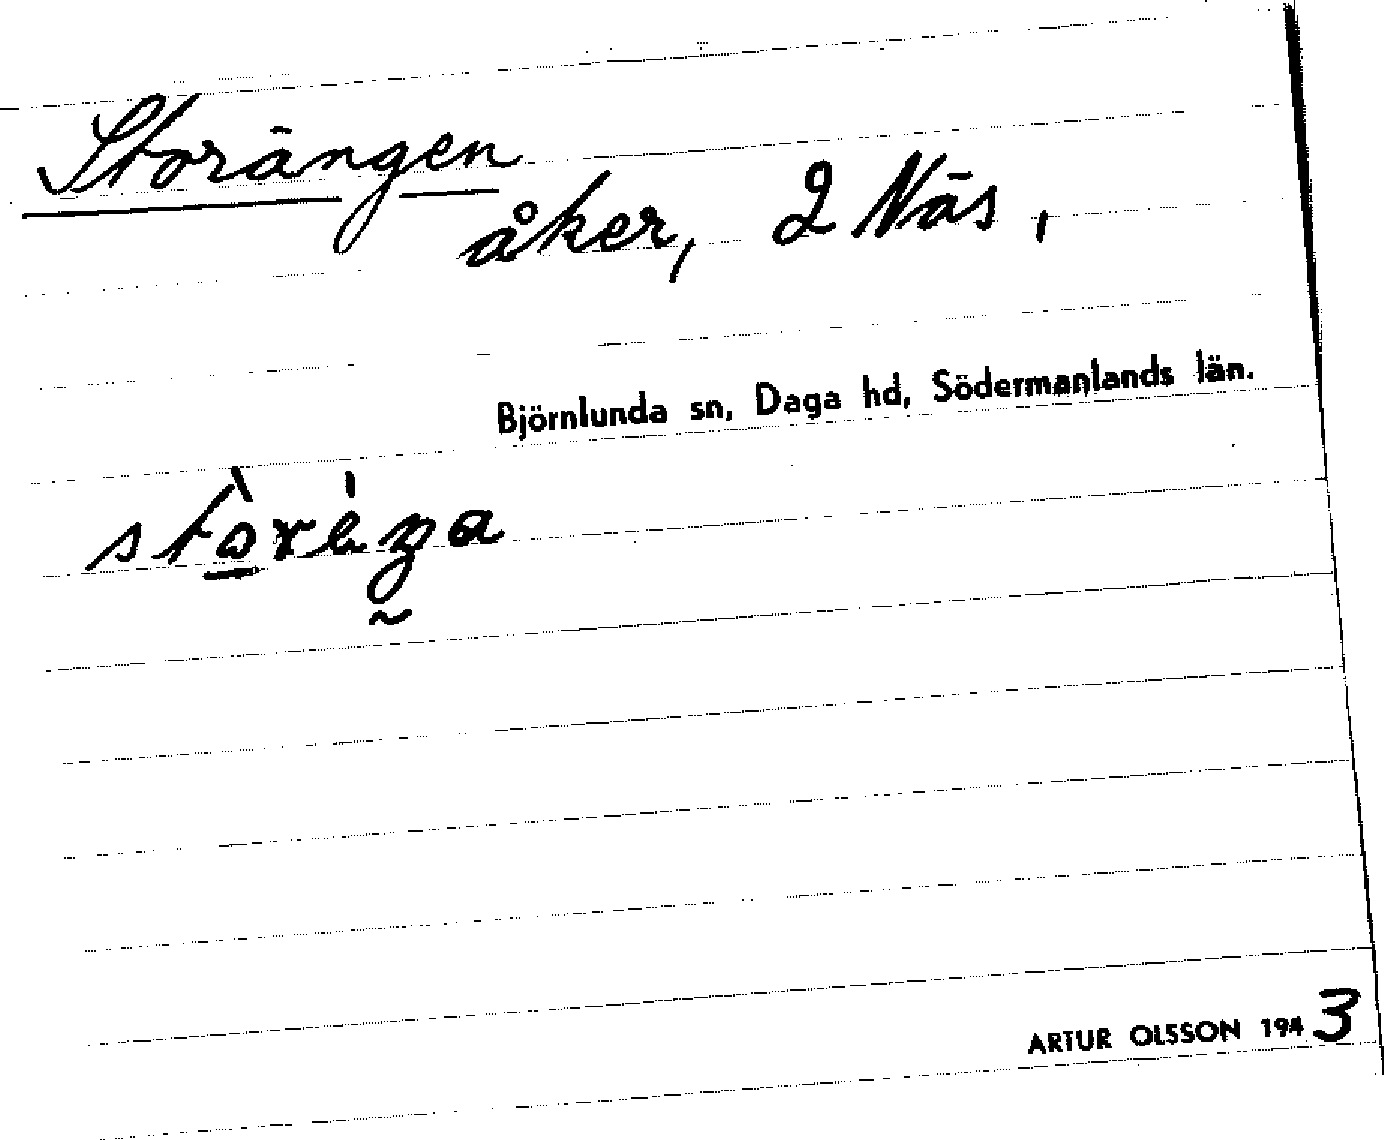 Storängen
åker, 2 Näs,
Björnlunda sn, Daga hd, Södermanlands län.
ARTUR OLSSON 1943